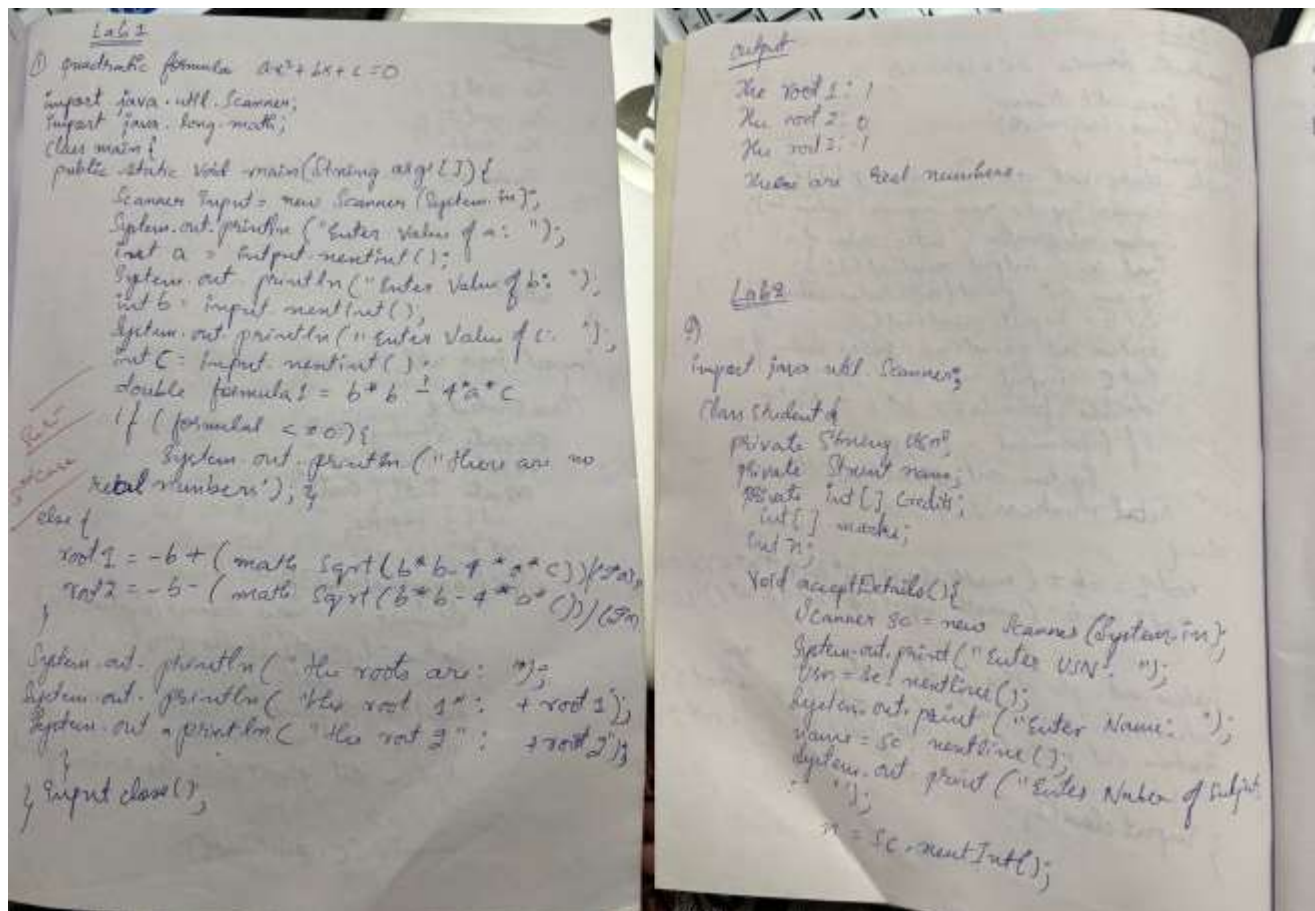 Lab 1
① quadratic formula ax²+bx+c=0
import java.util.Scanner;
import java.long.math;
class main {
public static void main(String args[]){
Scanner Input = new Scanner (System.in);
System.out.println ("Enter value of a: ");
int a = input.nextint();
System.out.println ("Enter Value of b: ");
int b = input nextint();
System.out.println ("Enter Value of c: ");
int C = input.nextint();
double formula1 = b*b - 4*a*c
if (formula1 <=0){
System.out.println ("there are no
real numbers"); }
else {
root1 = -b+ (math sqrt(b*b-4*a*c))/(2a);
root2 = -b- (math sqrt(b*b-4*a*c))/(2a
}
System.out.println ("the roots are: ");
System.out.println ( "the root 1": +root1);
System.out.println ( "the root 2": +root2");
}
} Input close();
output
The root 1: 1
The root 2: 0
The root 2: -1
There are real numbers.
Lab 2
import java util. Scanner;
Class Student {
private String Usn;
private name;
private int[] Credits;
int[] marks;
int n;
Void acceptDetails(){
Scanner sc = new Scanner (System.in);
System.out.print ("Enter USN: ");
Usn = sc.nextline();
System.out.print ("Enter Name: ");
name = sc nextline();
System.out print ("Enter Number of Subject
: ");
n = sc.nextInt();